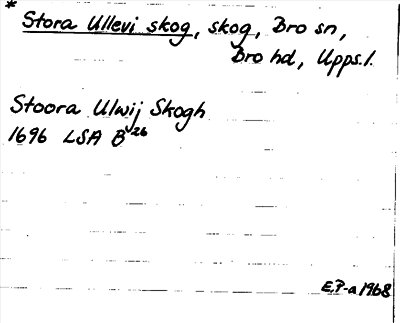 * Stora Ullevi skog, skog, Bro sn,
Bro hd, Upps.l.
Stoora Ulwij Skogh
1696 LSA B 26
E.P-a 1968